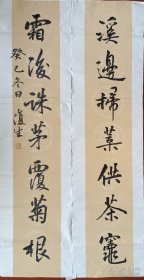 溪邊掃葉供茶竈
霜後誅茅覆菊根
癸巳冬日 復生